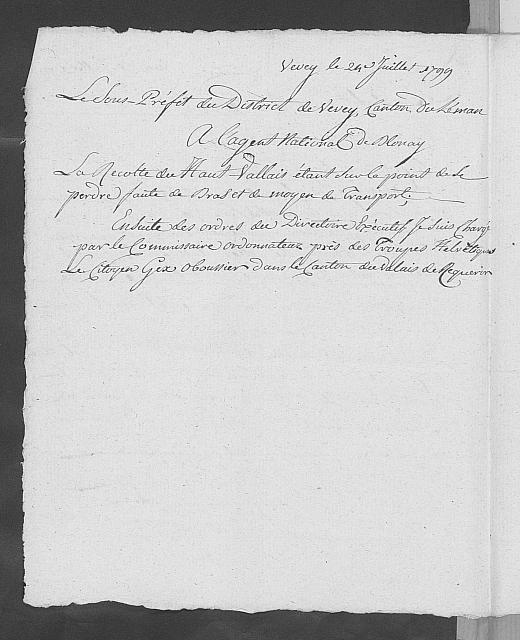 Vevey le 24e Juillet 1799
Le Sous-Préfet du District de Vevey, Canton du Léman
A L'agent National de Blonay
La Recolte du Haut-Vallais étant sur le point de se
perdre faute de Bras et de moyen de Transport.
Ensuite des ordres du Directoire Exécutif Je suis Chargé
par le Commissaire ordonnateur près des Troupes Helvétiques
Le Citoyen Gex Oboussier dans le Canton du Valais de Requerir